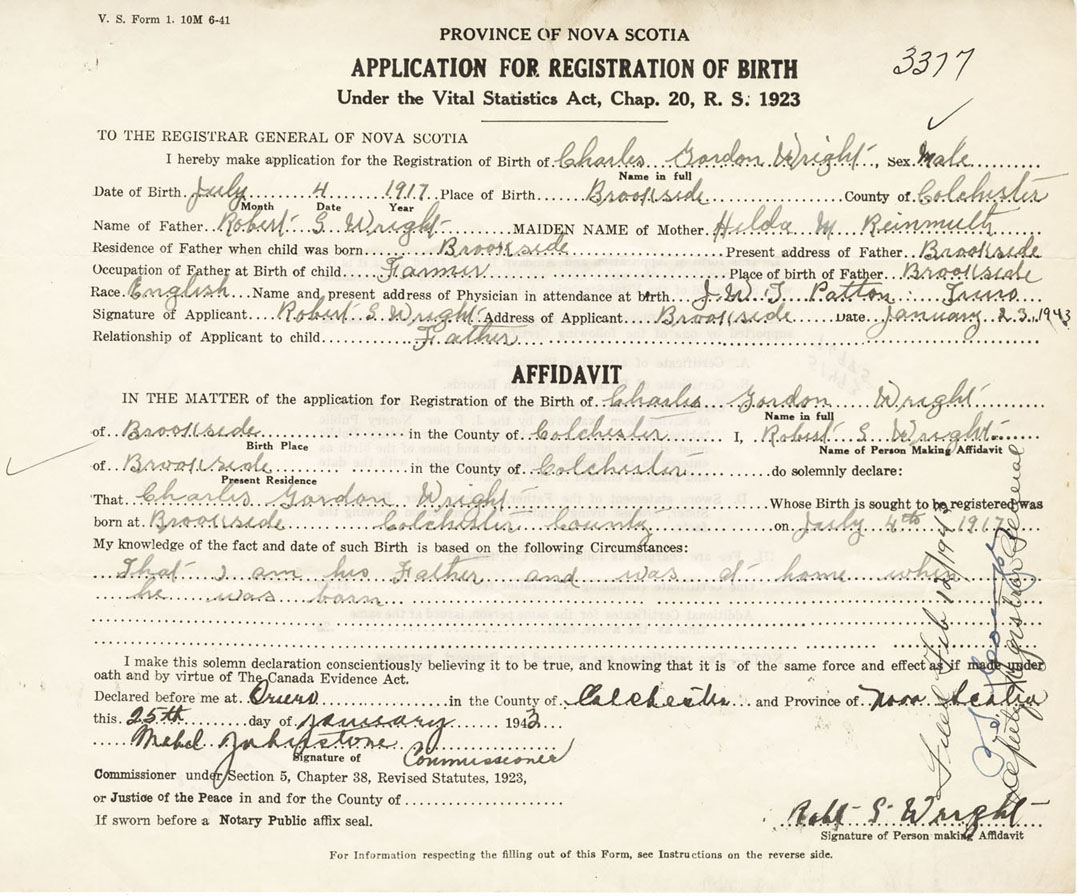 V. S. Form 1. 10M 6-41
PROVINCE OF NOVA SCOTIA
3377
APPLICATION FOR REGISTRATION OF BIRTH
Under the Vital Statistics Act, Chap. 20, R. S. 1923
TO THE REGISTRAR GENERAL OF NOVA SCOTIA
I hereby make application for the Registration of Birth of Charles Gordon Wright, Sex Male
Name in full
Date of Birth July 4 1917 Place of Birth Brookside County of Colchester
Month Date Year
Name of Father Robert S Wright MAIDEN NAME of Mother Hilda M Reinmuth
Residence of Father when child was born Brookside Present address of Father Brookside
Occupation of Father at Birth of child Farmer Place of birth of Father Brookside
Race English Name and present address of Physician in attendance at birth J. W. T. Patton Truro
Signature of Applicant Robert S Wright Address of Applicant Brookside Date January 23, 1943
Relationship of Applicant to child Father
AFFIDAVIT
IN THE MATTER of the application for Registration of the Birth of Charles Gordon Wright
Name in full
of Brookside in the County of Colchester I, Robert S Wright
Birth Place Name of Person Making Affidavit
of Brookside in the County of Colchester do solemnly declare:
Present Residence
That Charles Gordon Wright Whose Birth is sought to be registered was
born at Brookside Colchester County on July 4th 1917
My knowledge of the fact and date of such Birth is based on the following Circumstances:
That I am his Father and was at home when
he was born
I make this solemn declaration conscientiously believing it to be true, and knowing that it is of the same force and effect as if made under
oath and by virtue of The Canada Evidence Act.
Declared before me at Truro in the County of Colchester and Province of Nova Scotia
this 25th day of January 1943
Mabel Johnstone
Signature of Commissioner
Commissioner under Section 5, Chapter 38, Revised Statutes, 1923,
or Justice of the Peace in and for the County of
If sworn before a Notary Public affix seal.
Robt S Wright
Signature of Person making Affidavit
For Information respecting the filling out of this Form, see Instructions on the reverse side.
Filed Feb
Deputy Registrar General